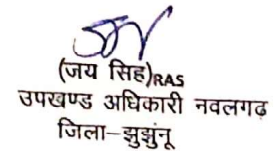 (जय सिह)RAS
उपखण्ड अधिकारी नवलगढ़
जिला–झुझुंनू